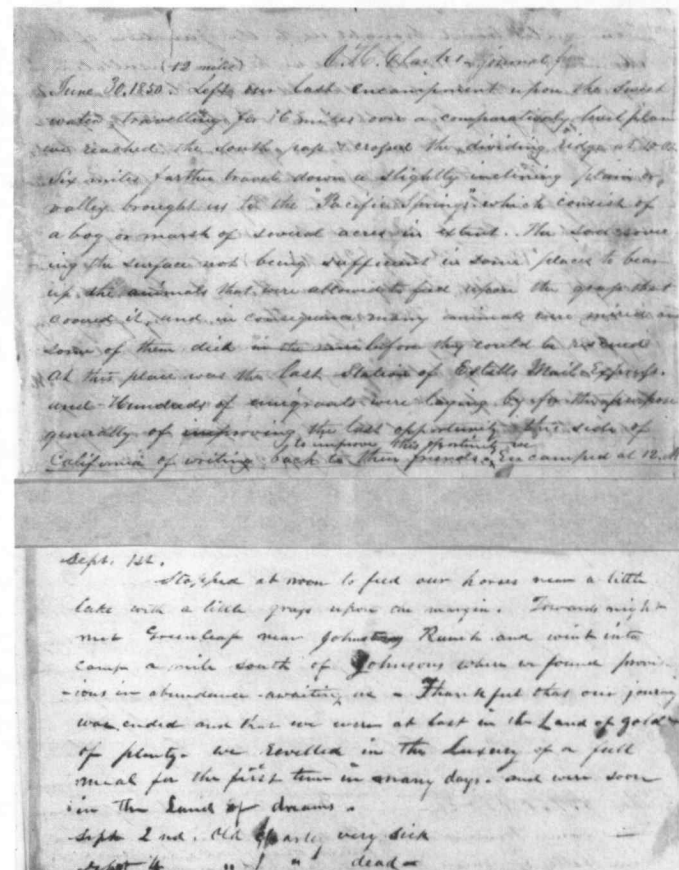 (12 miles)
June 30, 1850. Left our last encampment upon the Sweet
water, travelling for 16 miles over a comparatively level plain
we reached the South pass & crossed the dividing ridge at
Six miles farther travel down a slightly inclining plain or
valley brought us to the "Pacific Springs" which consist of
a bog or marsh of several acres in extent. The
ing the surface not being sufficient in some places to bear
up the animals that were allowed to feed upon the grass that
covered it, and in consequence many animals were mired
some of them died in the mire before they could be rescued
At this place was the last Station of Estills Mail Express.
and Hundreds of emigrants were laying by for the purpose
generally of improving the last opportunity this side of
to improve this oportunity we
California of writing back to their friends. Encamped at 12.
Sept. 1st.
Stopped at noon to feed our horses near a little
lake with a little grass upon the margin. Towards night
met Greenleaf near Ranch and went into
camp a mile south of Johnsons where we found provis
-ions in abundance awaiting us - Thankful that our journey
was ended and that we were at last in the Land of gold &
of plenty. we revelled in the Luxury of a full
meal for the first time in many days. and were soon
in the Land of dreams.
Sept 2nd. Old Charly very sick
Sept 4 " " " dead -